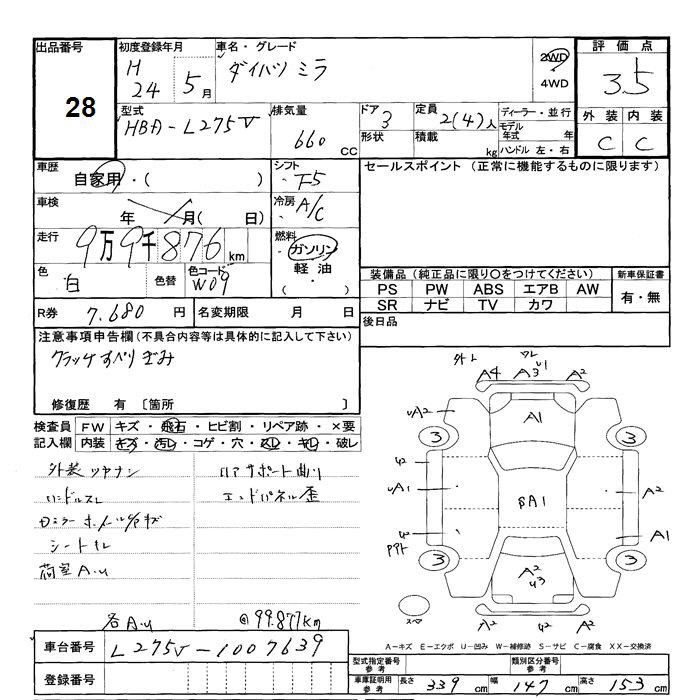 出品番号 初度登録年月 車名・グレード 評価点
28
H 24年 5月
ダイハツ ミラ
2WD
4WD
3.5
型式 排気量 ドア 定員 ディーラー・並行 外装 内装
HBA-L275V 660 CC 3 2(4)人
形状 積載 kg モデル年式 年
ハンドル 左・右
C C
車歴 シフト セールスポイント (正常に機能するものに限ります)
自家用・( ) F5
車検 冷房
年 月( 日) A/C
走行 燃料
9万9千876 km ガソリン
軽油
( ・ )
色 色替 色コード
白 W09
装備品 (純正品に限り〇をつけてください) 新車保証書
PS PW ABS エアB AW 有・無
SR ナビ TV カワ
R券 7.680円 名変期限 月 日
後日品
注意事項申告欄(不具合内容等は具体的に記入して下さい)
クラッチすべりぎみ
修復歴 有 〔箇所 〕
検査員 FW キズ・飛石・ヒビ割・リペア跡・×要
記入欄 内装 キズ・汚レ・コゲ・穴・スレ・キレ・破レ
外装ツヤナシ
ハンドルスレ
シート
荷室A.u
各A.u
リアサポート曲り
エンドパネル歪
@99.877km
外レ ワレ
A4 A3 U1 A2
uA2 A1
3 3
42
uA1 BA1 A2
42 A1
3 3
A2
43
A2 42 A2
スペ
A-キズ E-エクボ U-凹み W-補修跡 S-サビ C-腐食 XX-交換済
車台番号 L275V-1007639
登録番号
型式指定番号 参考 類別区分番号 参考
車庫証明用 参考 長さ 339cm 幅 147cm 高さ 153cm